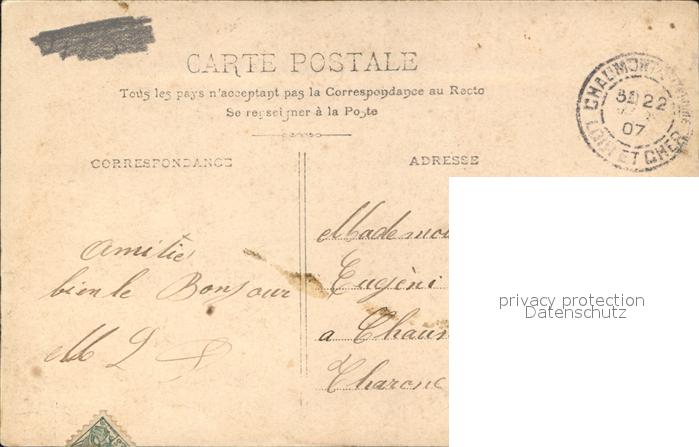 CARTE POSTALE
Tous les pays n'acceptant pas la Correspondance au Recto
Se renseigner à la Poste
CORRESPONDANCE
ADRESSE
CHAUMONT
22
07
LOIR ET CHER
Amitié
bien le Bonjour
M D
Mademoi
Eugèni
a Chaum
Charone
privacy protection
Datenschutz